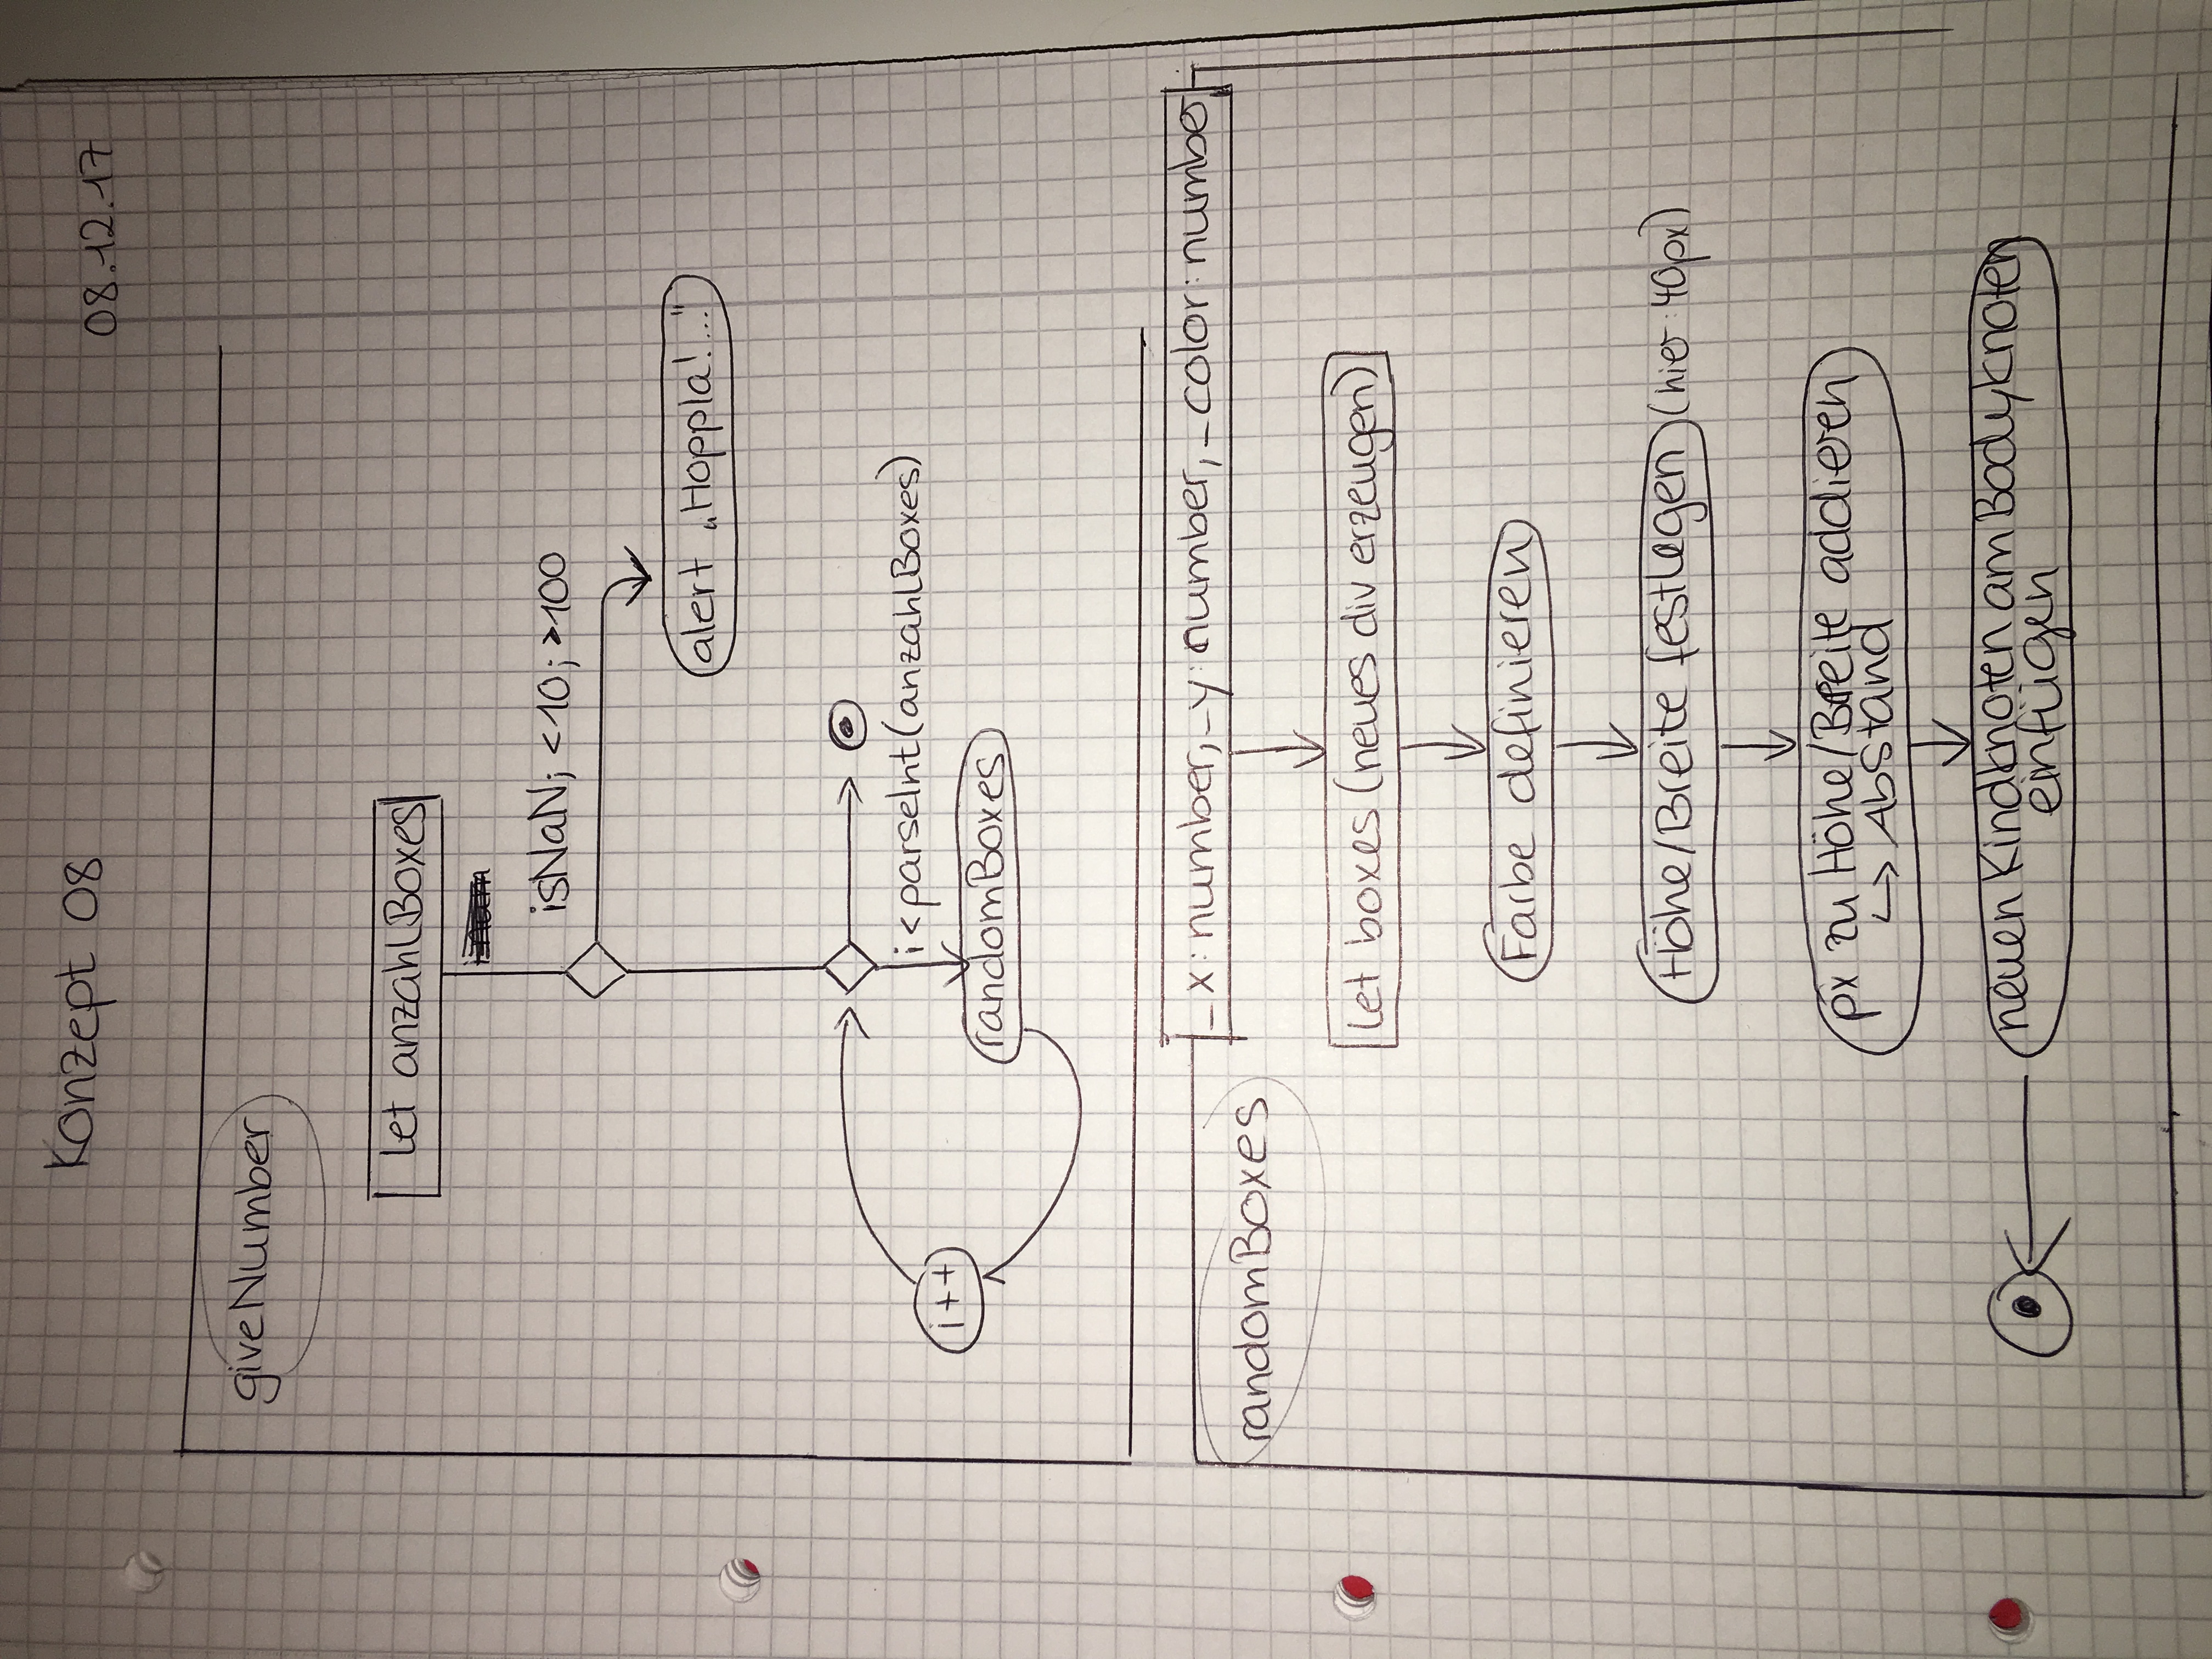 Konzept 08
08.12.17
giveNumber
let anzahlBoxes
isNaN; <10; >100
alert „Hoppla!..."
i<parseInt(anzahlBoxes)
i++
randomBoxes
_x: number, _y: number, _color: number
randomBoxes
let boxes (neues div erzeugen)
Farbe definieren
Höhe/Breite festlegen (hier: 40px)
px zu Höhe/Breite addieren
↳ Abstand
neuen Kindknoten am Bodyknoten
einfügen